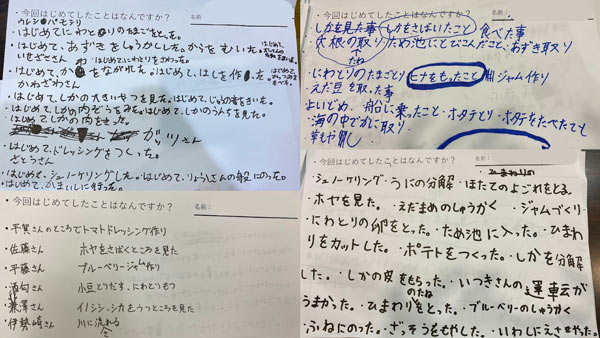 ・今回はじめてしたことはなんですか？ 名前：
ウルシバモラリ
・はじめて、にわとりのたまごをとった。
・はじめて、あずきをしゅうかくした。からをむいた。
いせざとさん はじめて、にわとりをさわった。
・はじめて、かわをながれた。はじめて、はしを作った。
かわざわさん
・はじめて、しかの大きいやつを見た。はじめて、
・はじめて、しかの内ぞうをみた。はじめて、しかのうんちを見た。
・はじめて、しかの肉をもった。
ガッツさん
・はじめて、ドレッシングをつくった。
さとうさん
・はじめて、シュノーケリングした。・はじめて、りょうしさんの船にのった。
・はじめて、
・今回はじめてしたことはなんですか？ 名前：
しかを見た事 しかをさばいたこと 食べた事
大根の取り ため池にとびこんだこと・あずき取り
たね
にわとりのたまごとり ヒナをもったこと ジャム作り
えだ豆を取った事
船に乗ったこと・ホタテとり・ホタテをたべたこと
・海の中でかに取り
・今回はじめてしたことはなんですか？ 名前：
・平賀さんのところでトマトドレッシング作り
・佐藤さん ホヤをさばくところを見た
・平藤さん ブルーベリージャム作り
・酒匂さん 小豆とりだす、にわとりもつ
・兼澤さん イノシシ、シカをうつところを見た
・伊勢崎さん 川に流れる
・今回はじめてしたことはなんですか？ 名前：
ひまわりの
・シュノーケリング・うにの分解・ほたてのよごれをとる
・ホヤを見た。・えだまめのしゅうかく ・ジャムづくり
・にわとりの卵をとった。・ため池に入った。・ひまわ
りをカットした。・ポテトをつくった。・しかを分解
した。・しかの皮をもらった。・いつきさんの運転が
のたね
うまかった。・ひまわりをとった。・ブルーベリーのしゅうかく
・ふねにのった。・ざっそうをもやした。・いわしにえさをやった。